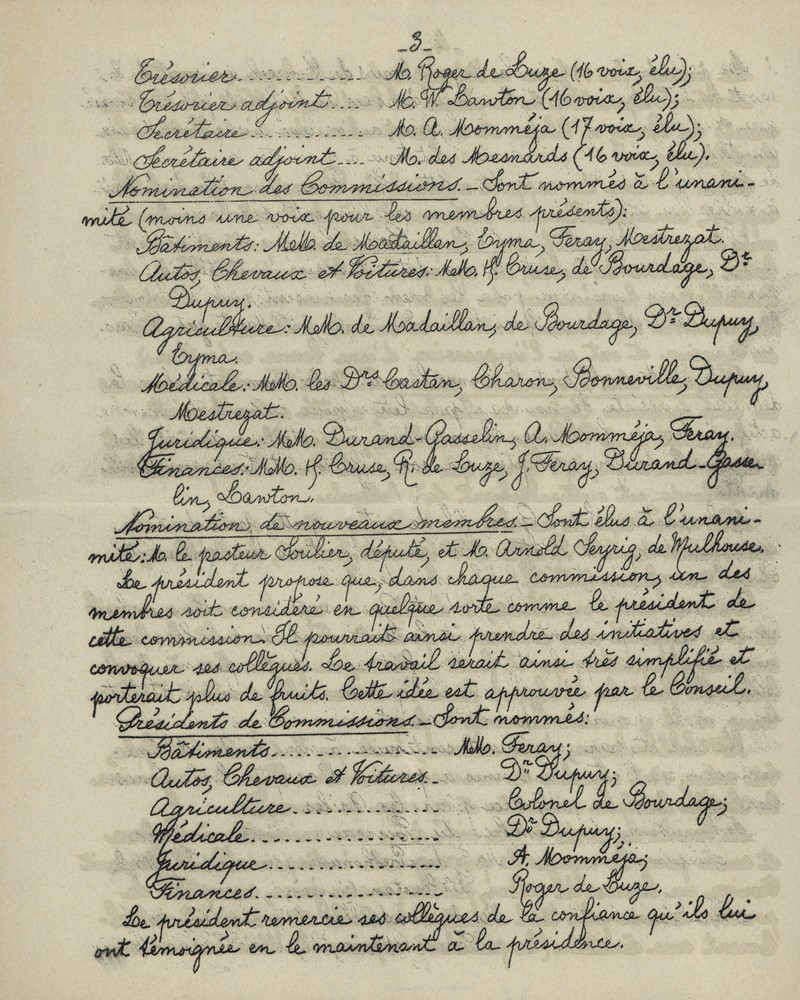 -3-
Trésorier............... M. Roger de Luze (16 voix, élu);
Trésorier adjoint.... M. W. Lawton (16 voix, élu);
Secrétaire.............. M. A. Momméja (17 voix, élu);
Secrétaire adjoint.... M. des Mesnards (16 voix, élu).
Nomination des Commissions. – Sont nommés à l'unani-
mité (moins une voix pour les membres présents):
Bâtiments: MM. de Madaillan, Eyma, Feray, Mestrezat.
Autos, Chevaux et Voitures: MM. H. Cruse, de Bourdage, Dr
Dupuy.
Agriculture: MM. de Madaillan, de Bourdage, Dr Dupuy,
Eyma.
Médicale: MM. les Drs Castan, Charon, Bonneville, Dupuy,
Mestrezat.
Juridique: MM. Durand-Gasselin, A. Momméja, Feray.
Finances: MM. H. Cruse, R. de Luze, J. Feray, Durand-Gasse-
lin, Lawton.
Nomination de nouveaux membres. – Sont élus à l'unani-
mité: M. le pasteur Soulier, député, et M. Arnold Seyrig, de Mulhouse.
Le président propose que, dans chaque commission, un des
membres soit considéré en quelque sorte comme le président de
cette commission. Il pourrait ainsi prendre des initiatives et
convoquer ses collègues. Le travail serait ainsi très simplifié et
porterait plus de fruits. Cette idée est approuvée par le Conseil.
Présidents de Commissions. – Sont nommés:
Bâtiments..................... MM. Feray;
Autos, Chevaux et Voitures.. Dr Dupuy;
Agriculture.................. Colonel de Bourdage;
Médicale...................... Dr Dupuy;
Juridique..................... A. Momméja;
Finances...................... Roger de Luze.
Le président remercie ses collègues de la confiance qu'ils lui
ont témoignée en le maintenant à la présidence.